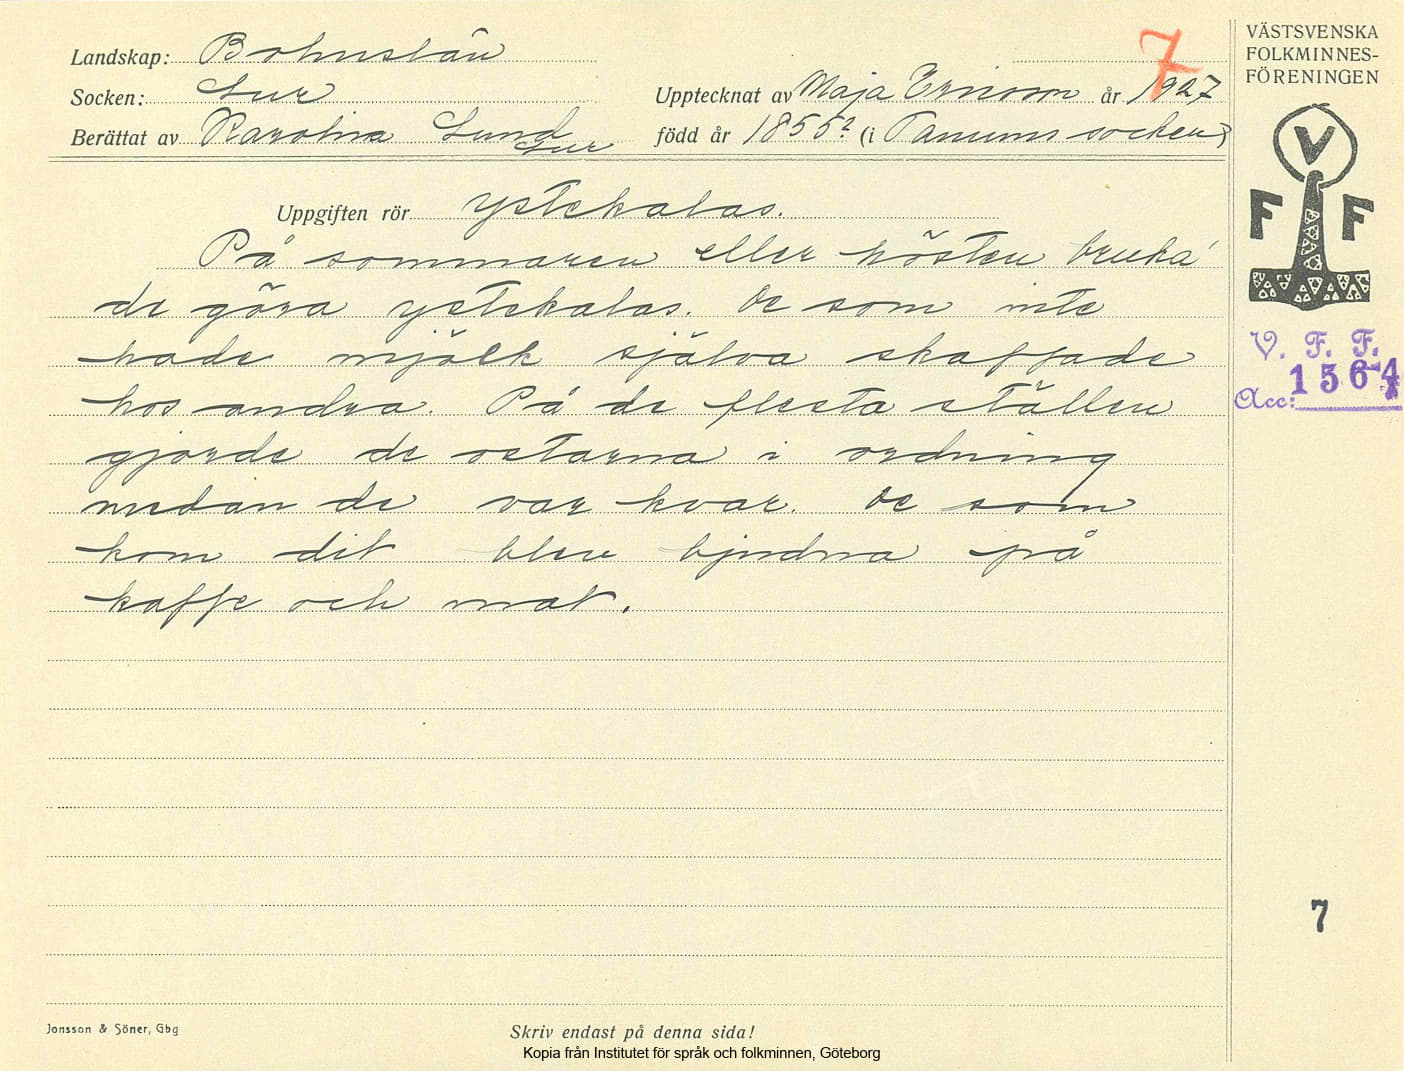 Landskap: Bohuslän
Socken: Lur
Upptecknat av Maja Ericson år 1927
Berättat av Karolina Lund
Lur
född år 1855? (i Tanums socken)
7
Uppgiften rör ystekalas.
På sommaren eller hösten bruka'
de göra ystekalas. De som inte
hade mjölk själva skaffade
hos andra. På de flesta ställen
gjorde de ostarna i ordning
medan de var kvar. De som
kom dit blev bjudna på
kaffe och mat.
VÄSTSVENSKA
FOLKMINNES-
FÖRENINGEN
V
F F
V. F. F.
Acc: 1564
7
Jonsson & Söner, Gbg
Skriv endast på denna sida!
Kopia från Institutet för språk och folkminnen, Göteborg